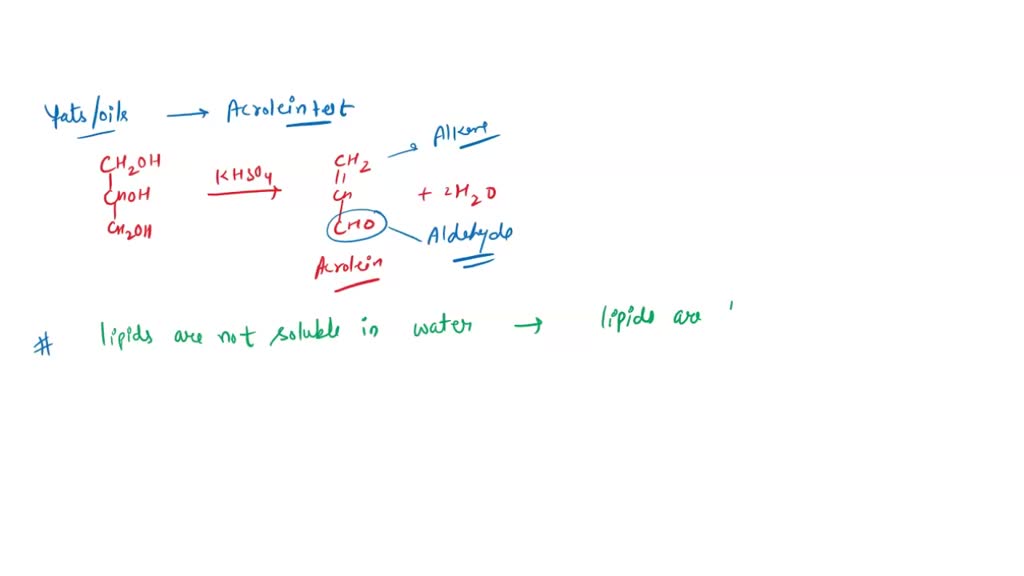 Fats/oils → Acrolein test
CH2OH KHSO4 CH2 Alkene
CHOH CH + 2H2O
CH2OH CHO Aldehyde
Acrolein
# lipids are not soluble in water → lipids are